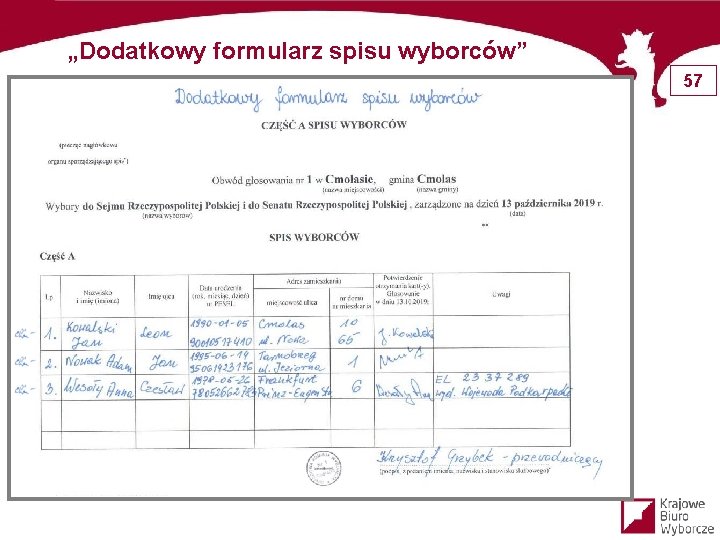 „Dodatkowy formularz spisu wyborców”
57
Dodatkowy formularz spisu wyborców
CZĘŚĆ A SPISU WYBORCÓW
(pieczęć nagłówkowa
organu sporządzającego spis*)
Obwód głosowania nr 1 w Cmolasie, gmina Cmolas
(nazwa miejscowości) (nazwa gminy)
Wybory do Sejmu Rzeczypospolitej Polskiej i do Senatu Rzeczypospolitej Polskiej , zarządzone na dzień 13 października 2019 r.
(nazwa wyborów) (data)
SPIS WYBORCÓW
Część A
Lp. Nazwisko i imię (imiona) Imię ojca Data urodzenia (rok, miesiąc, dzień) nr PESEL Adres zamieszkania miejscowość/ulica nr domu nr mieszkania Potwierdzenie otrzymania kart(-y). Głosowanie w dniu 13.10.2019r. Uwagi
1. Kowalski Jan Leon 1990-01-05 90010517410 Cmolas ul. Nowa 10 65 J. Kowalski
2. Nowak Adam Jan 1995-06-19 95061923176 Tarnobrzeg ul. Jeziorna 1
3. Wesoły Anna Czesław 1978-05-26 Frankfurt Prinz-Eugen Str 6 Wesoły Anna EL 23 37 289 wyd. Wojewoda Podkarpacki
Krzysztof Grzybek - przewodniczący
(podpis, z podaniem imienia, nazwiska i stanowiska służbowego)*
Krajowe
Biuro
Wyborcze